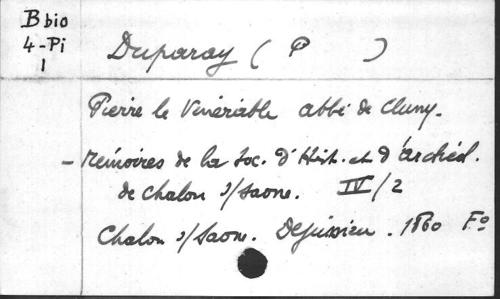 B bio
4-Pi
1
Duparay ( P )
Pierre le Vénérable abbé de Cluny.
- Mémoires de la Soc. d'Hist. et d'Archéol.
de Chalon s/Saone. IV/2
Chalon s/Saone. Dejussieu. 1860 Fº